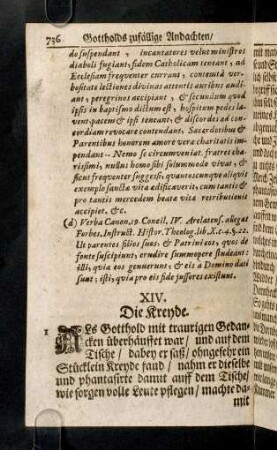 736 Gottholds zufällige Andachten/
do suspendant, incantatores velut ministros
diaboli fugiant, fidem Catholicam teneant, ad
Ecclesiam frequenter currant, contemtâ ver-
bositate lectiones divinas attentis auribus audi-
ant, peregrinos accipiant, & secundum quod
ipsis in baptismo dictum est, hospitum pedes la-
vent, pacem & ipsi teneant, & discordes ad con-
cordiam revocare contendant, Sacerdotibus &
Parentibus honorem amore vera charitatis im-
pendant -- Nemo se circumveniat, fratres cha-
rissimi, nullus homo sibi soli modo vivat, &
sicut frequenter suggessi, quantoscunque aliquis
exemplo sancta vita adificaverit, cum tantis &
pro tantis mercedem beata vita retributionis
accipiet, &c.
(d) Verba Canon. 19. Concil. IV. Arelatens. allegat
Forbes. Instruct. Histor. Theolog. lib. X. c. 4. §. 22.
Ut parentes filios suos, & Patrini eos, quos de
fonte suscipiunt, erudire summopere studeant:
illi, quia eos genuerunt, & eis à Domino dati
sunt; isti, quia pro eis fide jussores existunt.
XIV.
Die Kreyde.
1 Als Gotthold mit traurigen Gedan-
cken überhäuffet war/ und auf dem
Tische/ dabey er saß/ ohngefehr ein
Stücklein Kreyde fand/ nahm er dieselbe
und phantasirte damit auff dem Tische/
wie sorgen volle Leute pflegen/ machte da-
mit